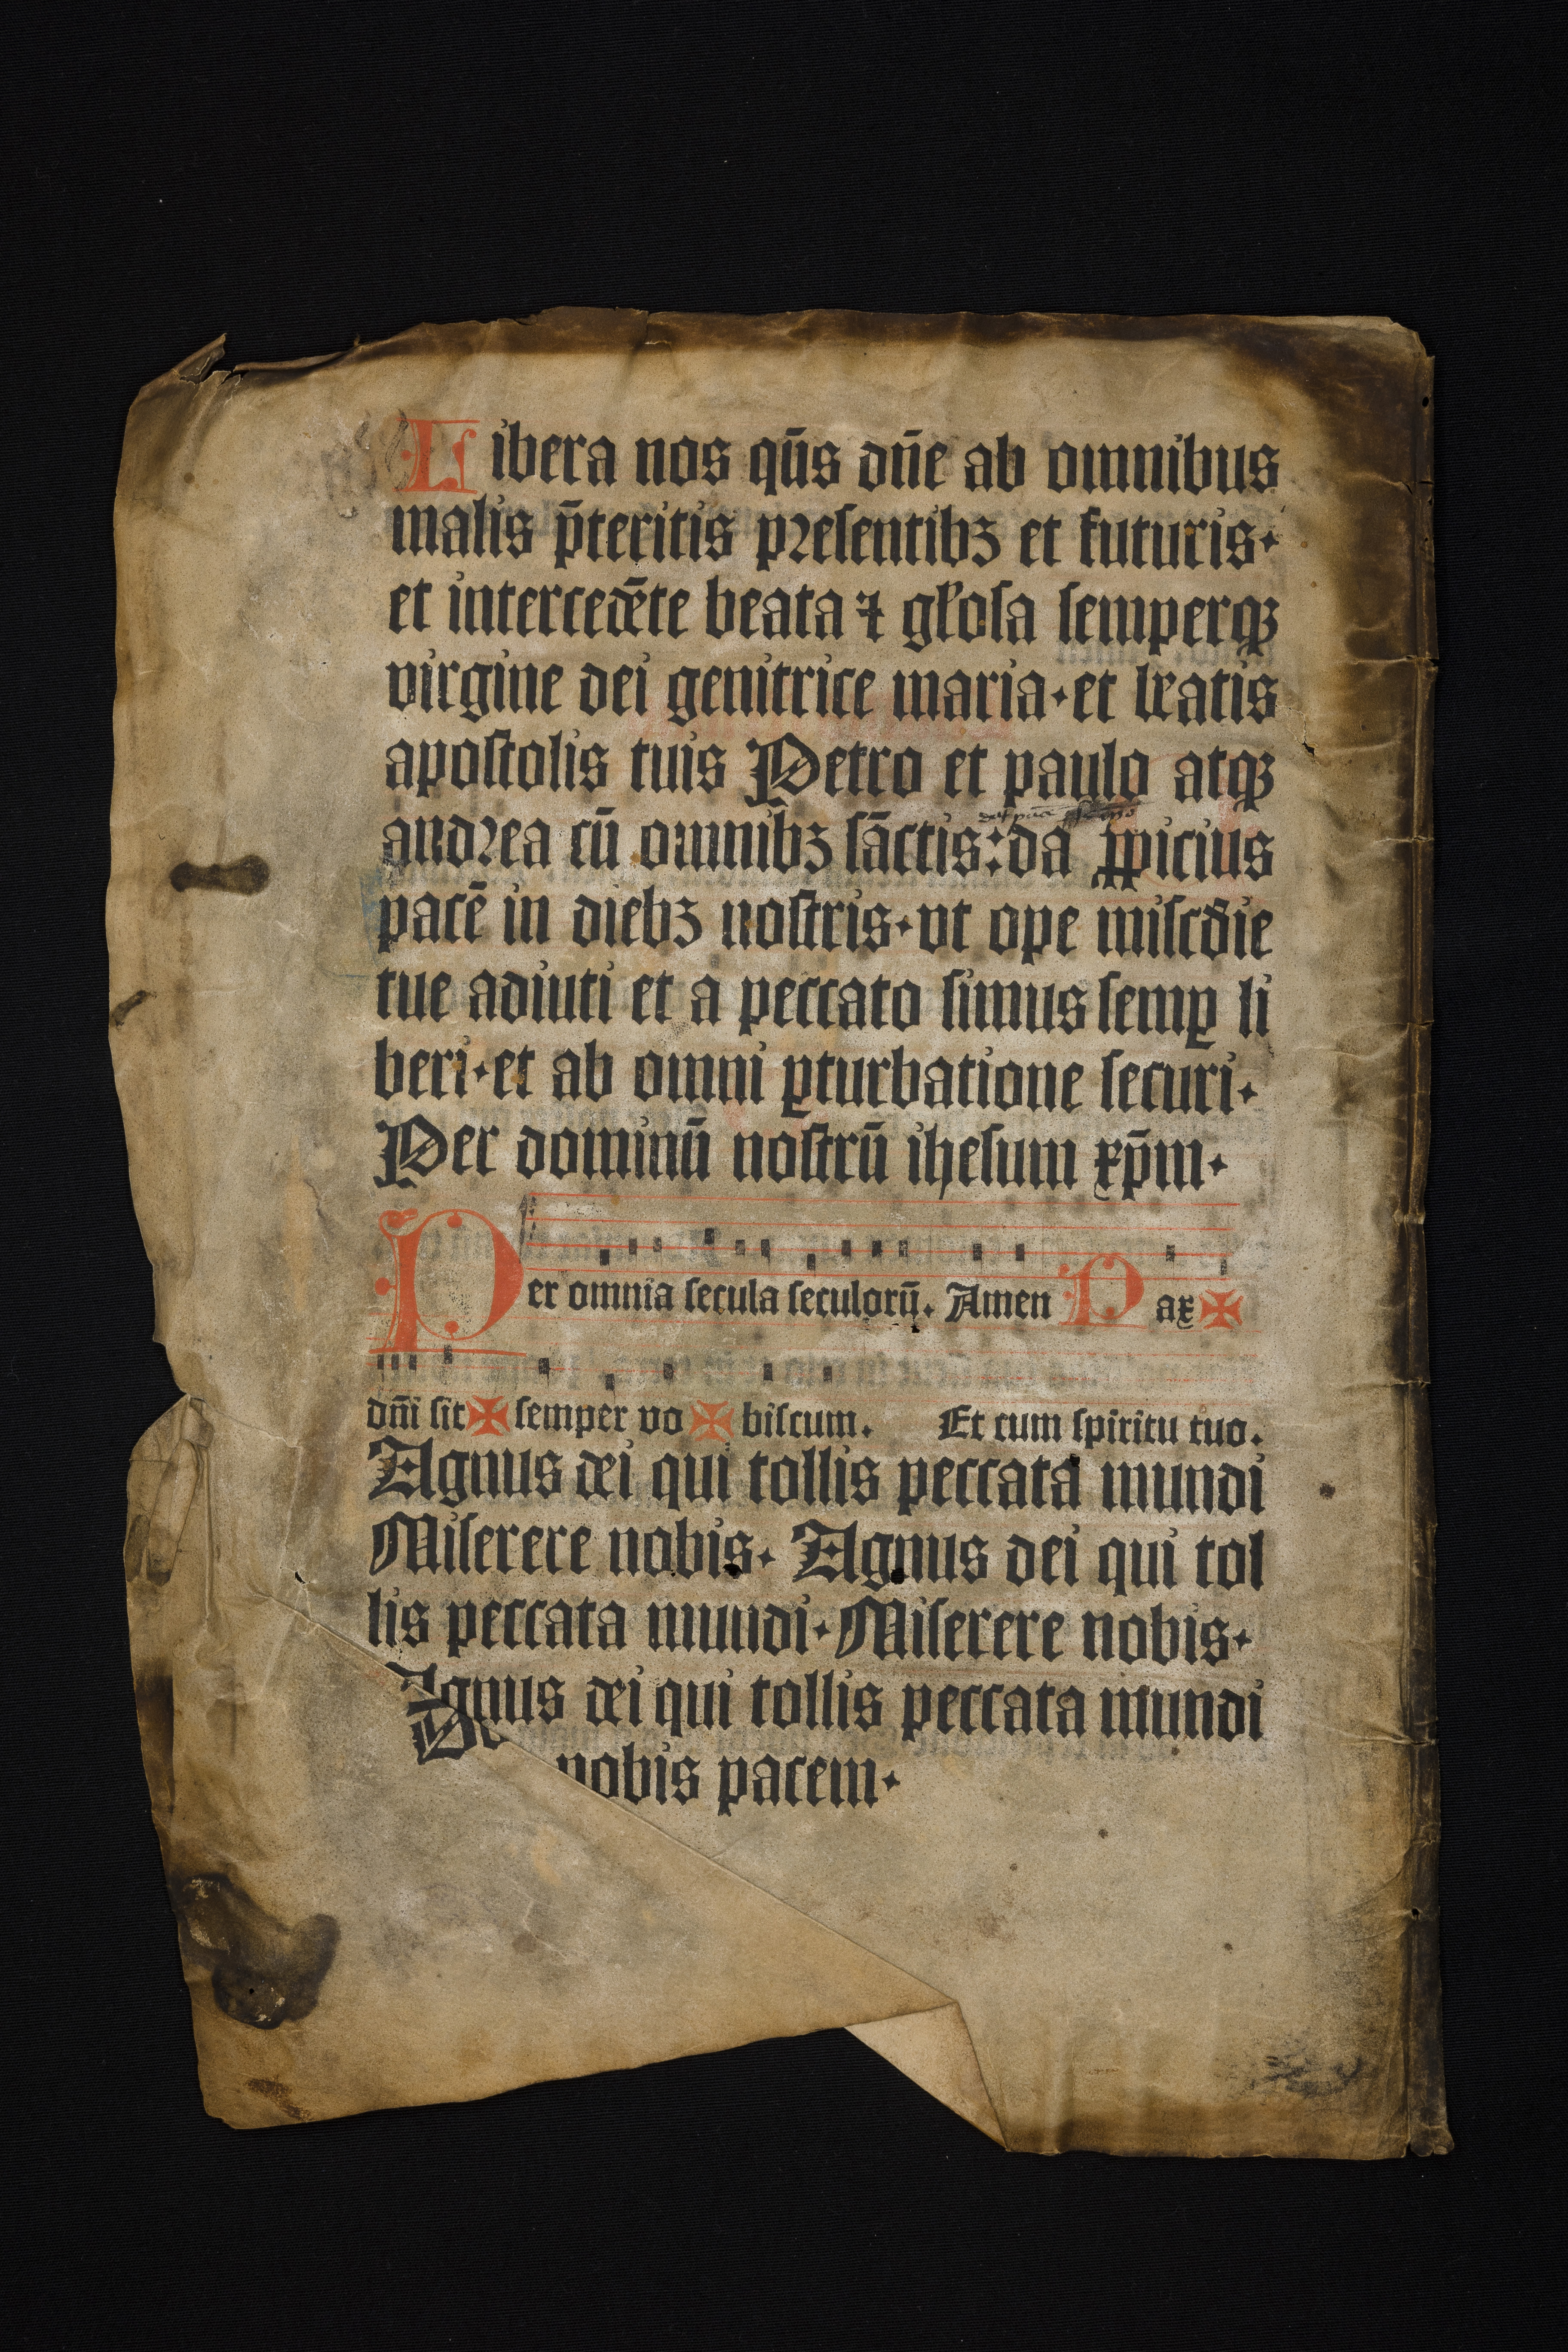 Libera nos qūs dn̄e ab omnibus
malis p̄teritis presentibꝫ et futuris·
et intercedēte beata ⁊ gl̓osa semperqꝫ
virgine dei genitrice maria·et beatis
apostolis tuis Petro et paulo atqꝫ
andrea cū omnibꝫ sāctis:da ꝓpicius
pacē in diebꝫ nostris·vt ope misc̄die
tue adiuti et a peccato simus semꝑ li
beri·et ab omni ꝑturbatione securi·
Per dominū nostrū ihesum xp̄m·
Per omnia secula seculorū. Amen Pax ✠
dn̄i sit ✠ semper vo ✠ biscum. Et cum spiritu tuo.
Agnus dei qui tollis peccata mundi
Miserere nobis· Agnus dei qui tol
lis peccata mundi·Miserere nobis·
Agnus dei qui tollis peccata mundi
nobis pacem·